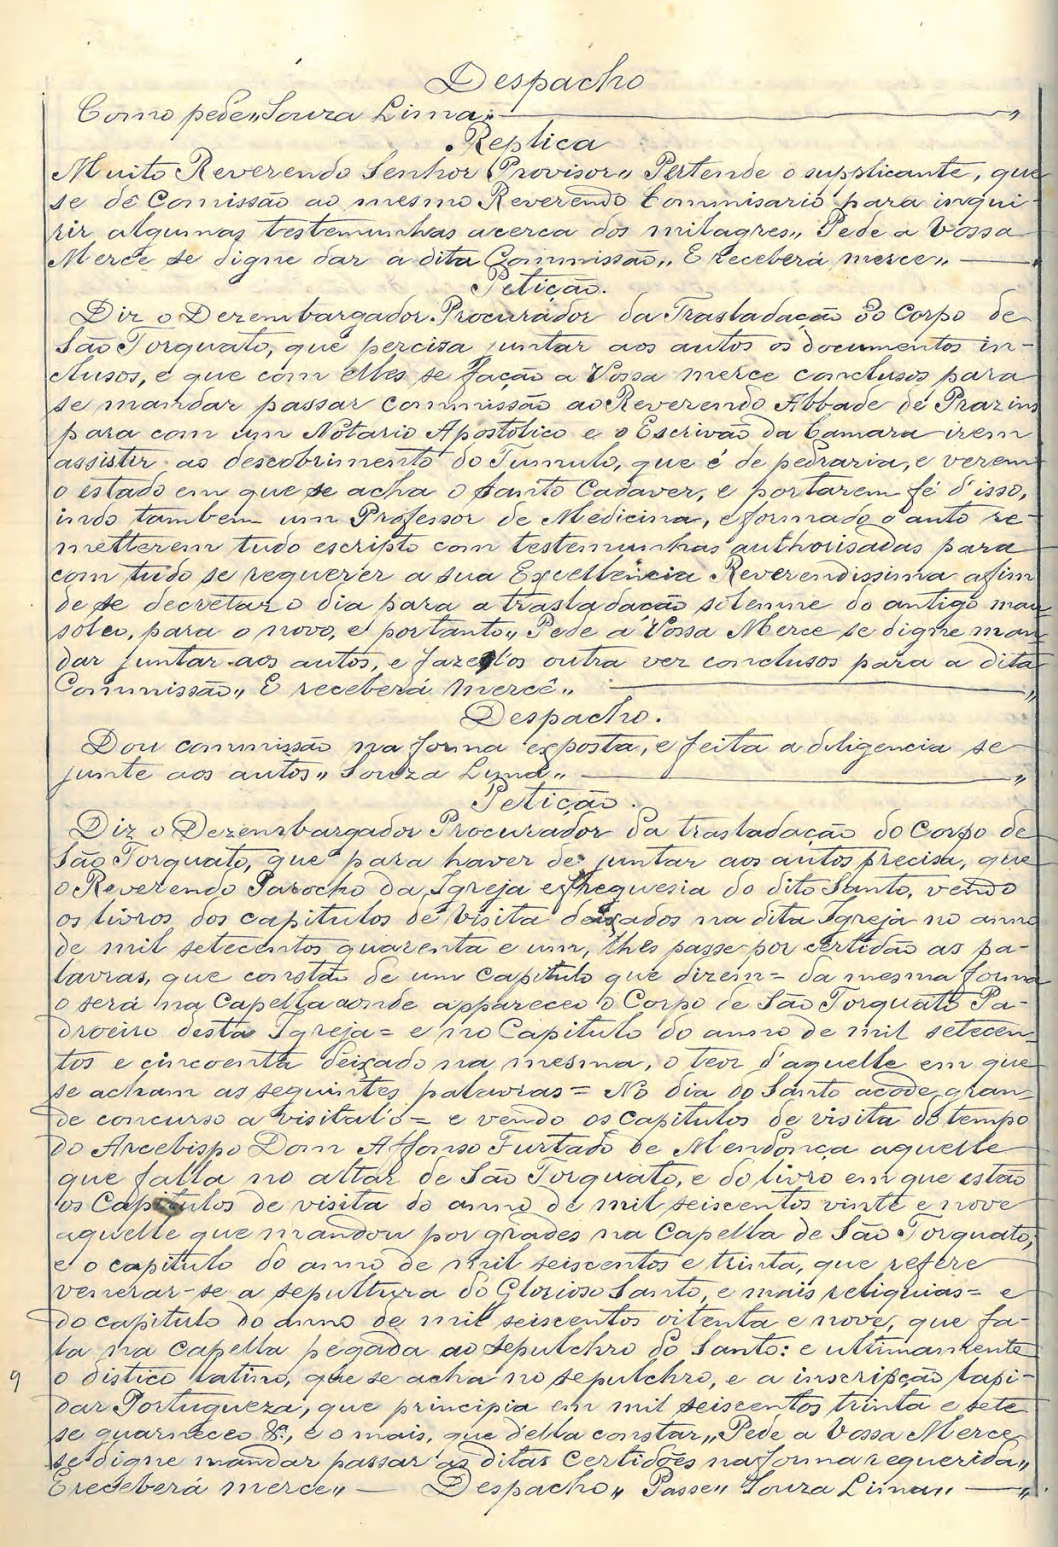 Despacho
Como pede „ Souza Lima „
Replica
Muito Reverendo Senhor Provisor „ Pertende o supplicante, que
se dê Comissão ao mesmo Reverendo Commisario para inqui-
rir algumas testemunhas acerca dos milagres „ Pede a Vossa
Merce se digne dar a dita Commissão „ E receberá merce „
Petição.
Diz o Dezembargador Procurador da Trasladação do Corpo de
São Torquato, que percisa juntar aos autos os documentos in-
clusos, e que com elles se fação a Vossa merce conclusos para
se mandar passar commissão ao Reverendo Abbade de Prazins
para com um Notario Apostolico e o Escrivão da Camara irem
assistir ao descobrimento do Tumulo, que é de pedraria, e verem
o estado em que se acha o Santo Cadaver, e portarem fé d'isso,
indo tambem um Professor de Medicina, e formado o auto re-
metterem tudo escripto com testemunhas authorisadas para
com tudo se requerer a sua Excellencia Reverendissima afim
de se decretar o dia para a trasladação solemne do antigo mau-
soleo, para o novo, e portanto „ Pede a Vossa Merce se digne man-
dar juntar aos autos, e fazel'os outra vez conclusos para a dita
Commissão „ E receberá Mercê „
Despacho.
Dou commissão na forma exposta, e feita a diligencia se
junte aos autos „ Souza Lima „
Petição.
Diz o Dezembargador Procurador da trasladação do Corpo de
São Torquato, que para haver de juntar aos autos precisa, que
o Reverendo Parocho da Igreja e freguesia do dito Santo, vendo
os livros dos capitulos de Visita deixados na dita Igreja no anno
de mil setecentos quarenta e um, lhes passe por certidão as pa-
lavras, que constão de um capitulo que dizem = da mesma forma
o será na Capella aonde appareceo o Corpo de São Torquato Pa-
droeiro desta Igreja = e no Capitulo do anno de mil setecen-
tos e cincoenta deixado na mesma, o teor d'aquelle em que
se acham as seguintes palavras = No dia do Santo acode gran-
de concurso a visital'o = e vendo os capitulos de visita do tempo
do Arcebispo Dom Affonso Furtado de Mendonça aquelle
que falla no altar de São Torquato, e do livro em que estão
os Capitulos de visita do anno de mil seiscentos vinte e nove
aquelle que mandou por grades na Capella de São Torquato;
e o capitulo do anno de mil seiscentos e trinta, que refere
venerar-se a sepultura do Glorioso Santo, e mais reliquias = e
do capitulo do anno de mil seiscentos oitenta e nove, que fa-
la na capella pegada ao sepulchro do Santo: e ultimamente
9 o distico latino, que se acha no sepulchro, e a inscripção lapi-
dar Portugueza, que principia em mil seiscentos trinta e sete
se guarneceo &, e o mais, que d'ella constar „ Pede a Vossa Merce
se digne mandar passar as ditas Certidões na forma requerida „
E receberá merce „ — Despacho „ Passe „ Souza Lima „